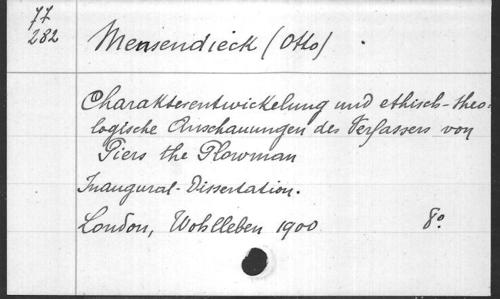 77
282
Mensendieck (Otto)
Charakterentwickelung und ethisch-theo-
logische Anschauungen des Verfassers von
Piers the Plowman
Inaugural-Dissertation.
London, Wohlleben 1900 8°